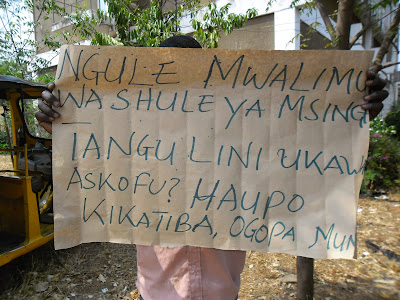 NGULE MWALIMU
WA SHULE YA MSING
TANGU LINI UKAW
ASKOFU? HAUPO
KIKATIBA, OGOPA MUN